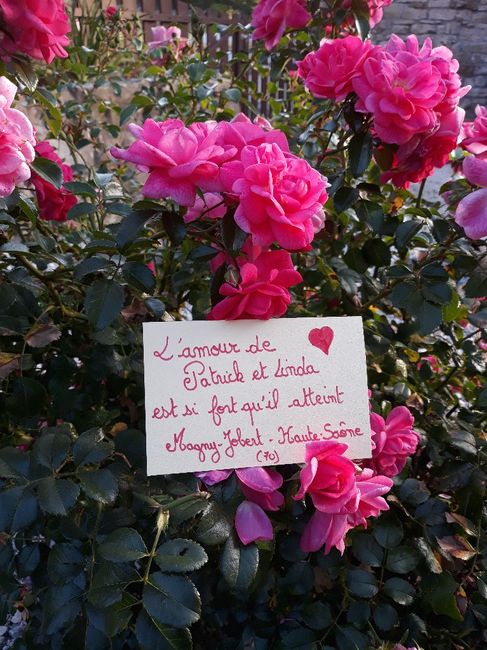 L'amour de
Patrick et Linda
est si fort qu'il atteint
Magny-Jobert - Haute-Saône
(70)